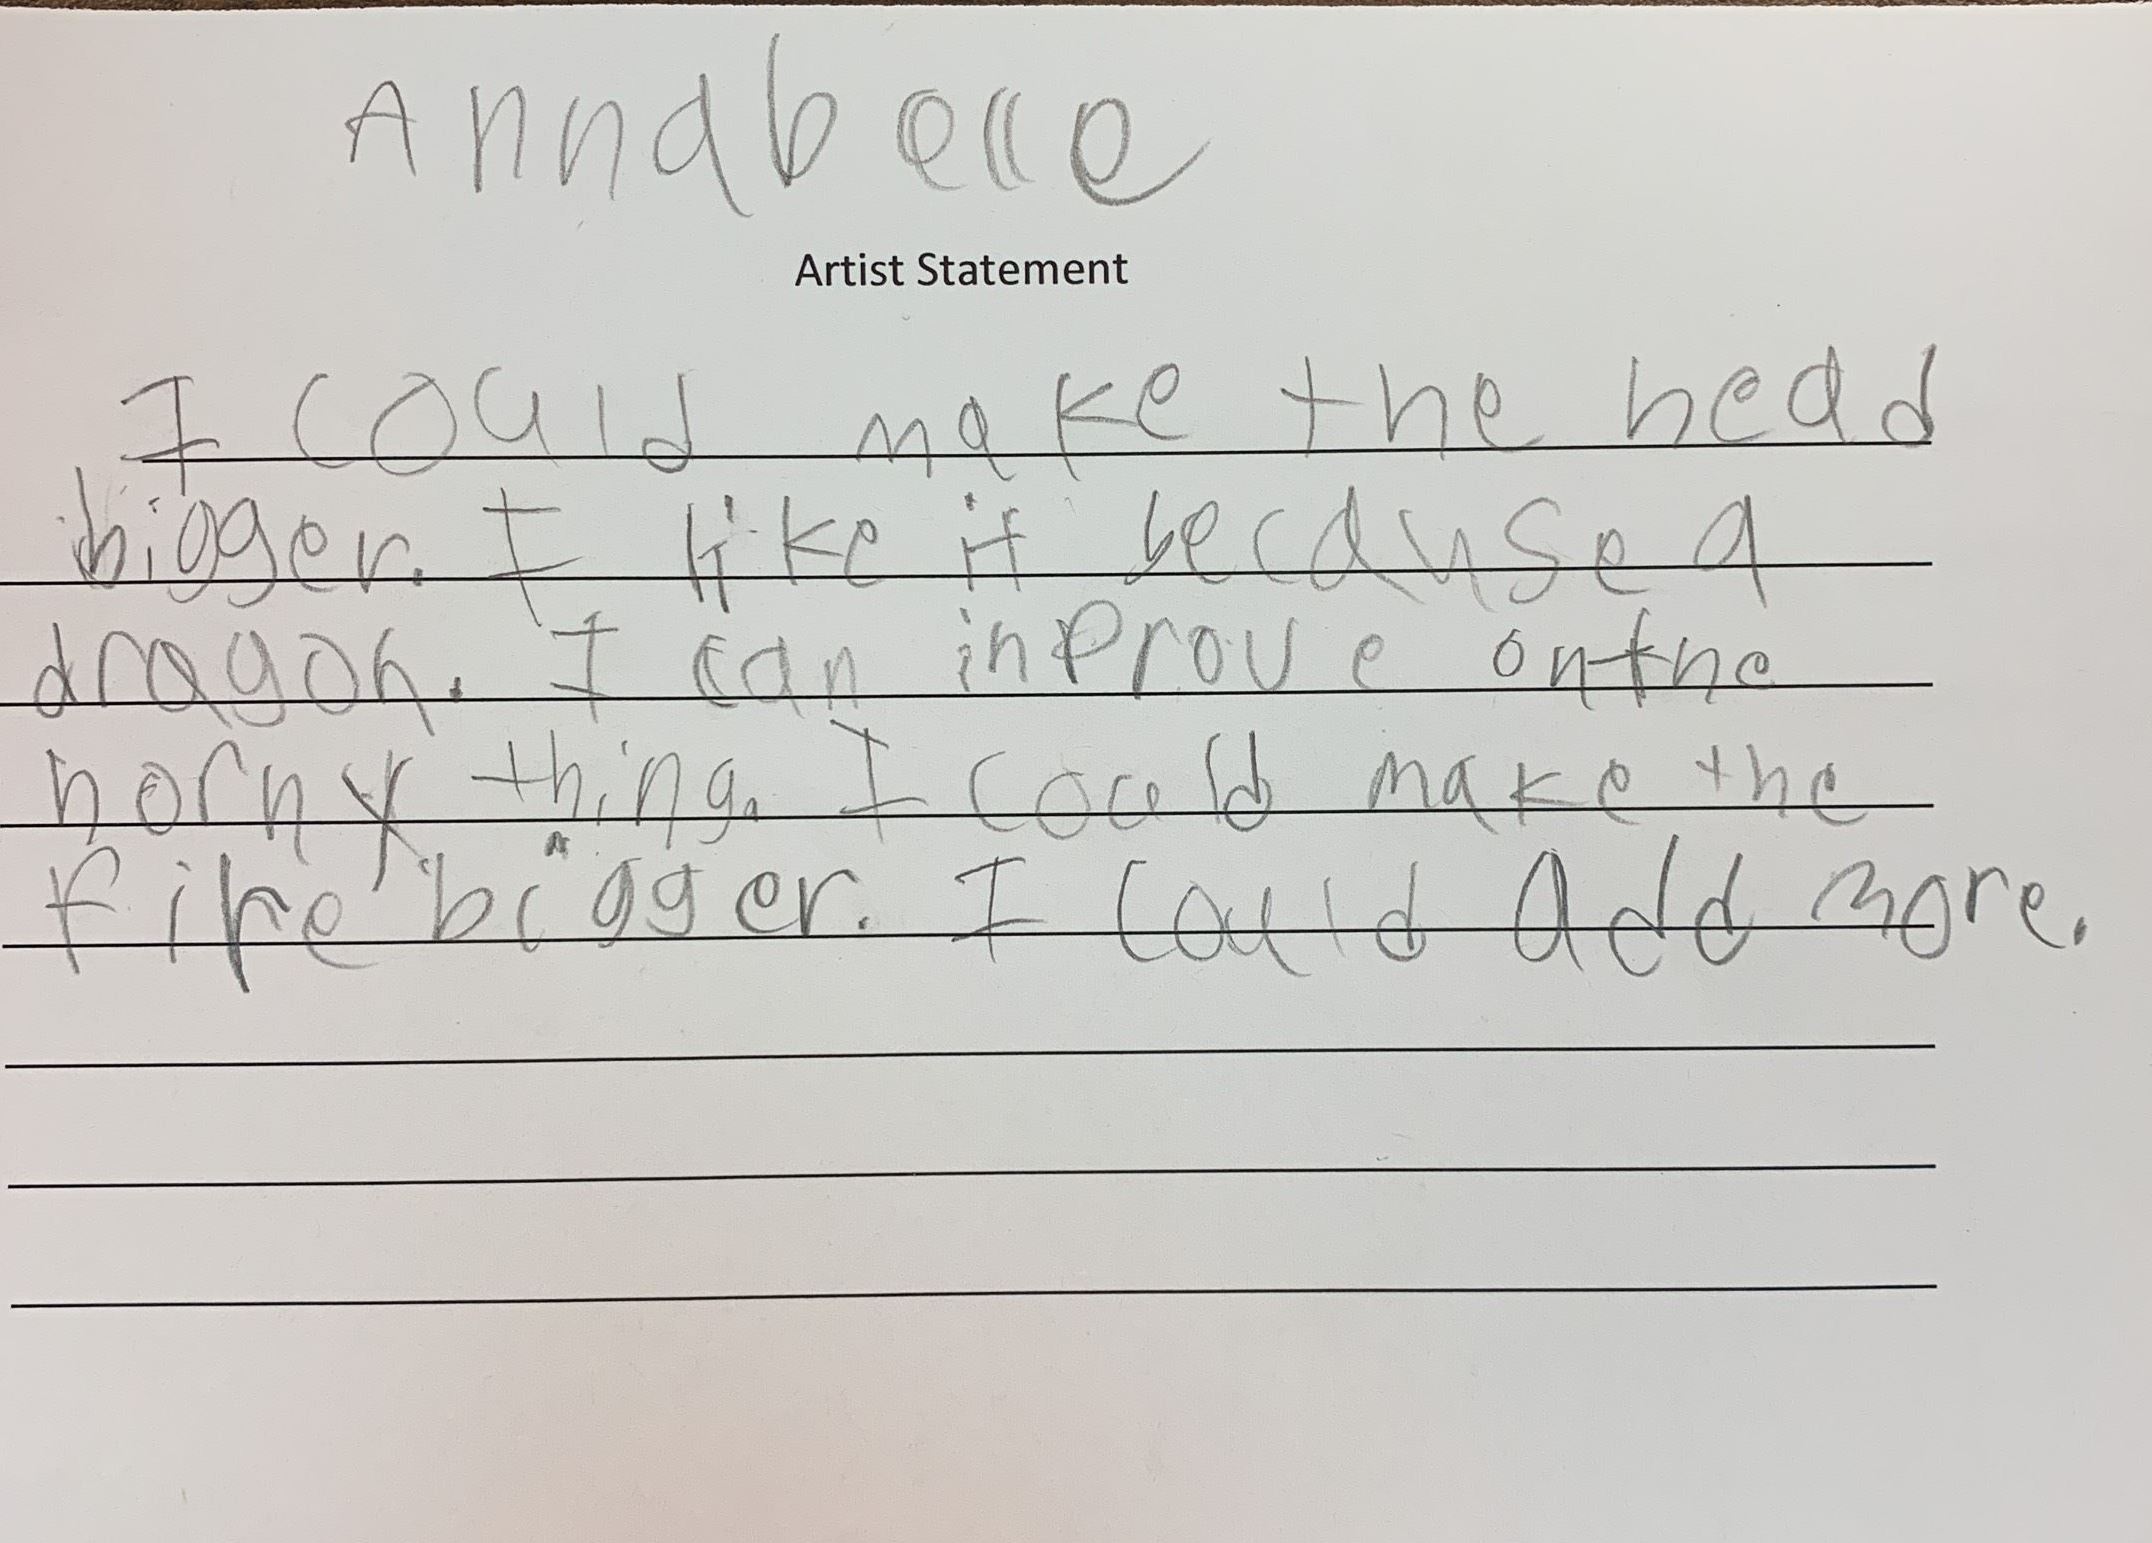 Annabelle
Artist Statement
I could make the head
bigger. I like it because a
dragon. I can inprove on the
horny thing. I could make the
fire bigger. I could add more.